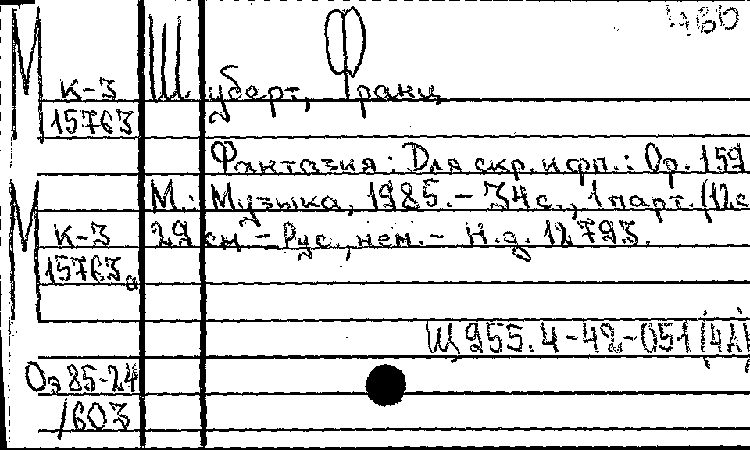 460
М Шуберт, Франц
К-3
15763
Фантазия: Для скр. и фп.: Ор. 159
М.: Музыка, 1985. - 34 с., 1 парт. (12 с
М К-3 29 см - Рус., нем. - Н.д. 12793.
15763а
Щ 955.4-42-051 (4А)
Оэ 85-24
/603